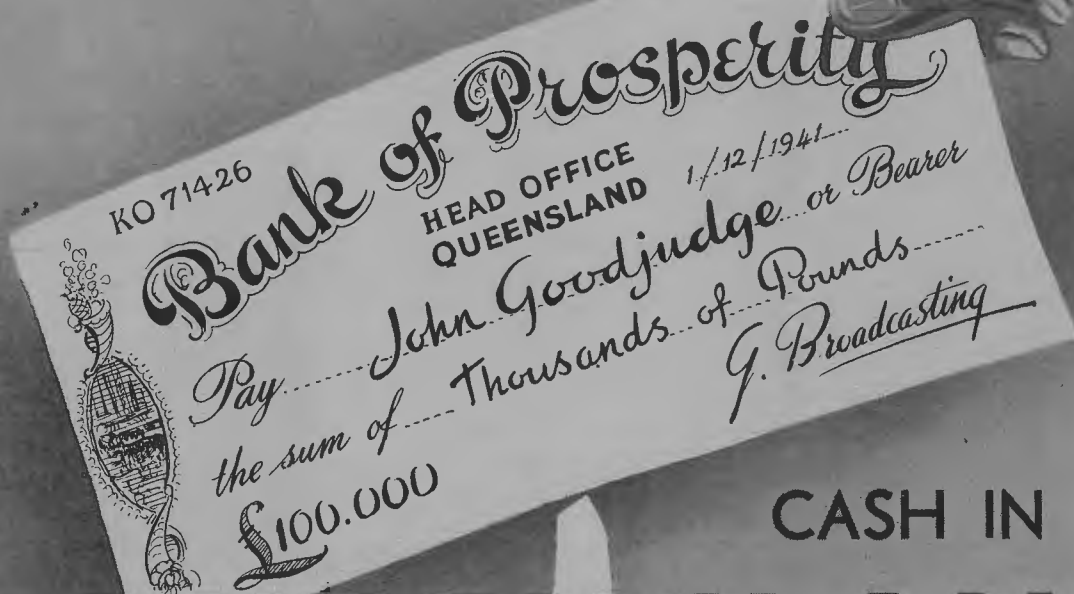 KO 71426
Bank of Prosperity
HEAD OFFICE
QUEENSLAND
1/12/1941
Pay John Goodjudge or Bearer
the sum of Thousands of Pounds
G. Broadcasting
£100.000
CASH IN